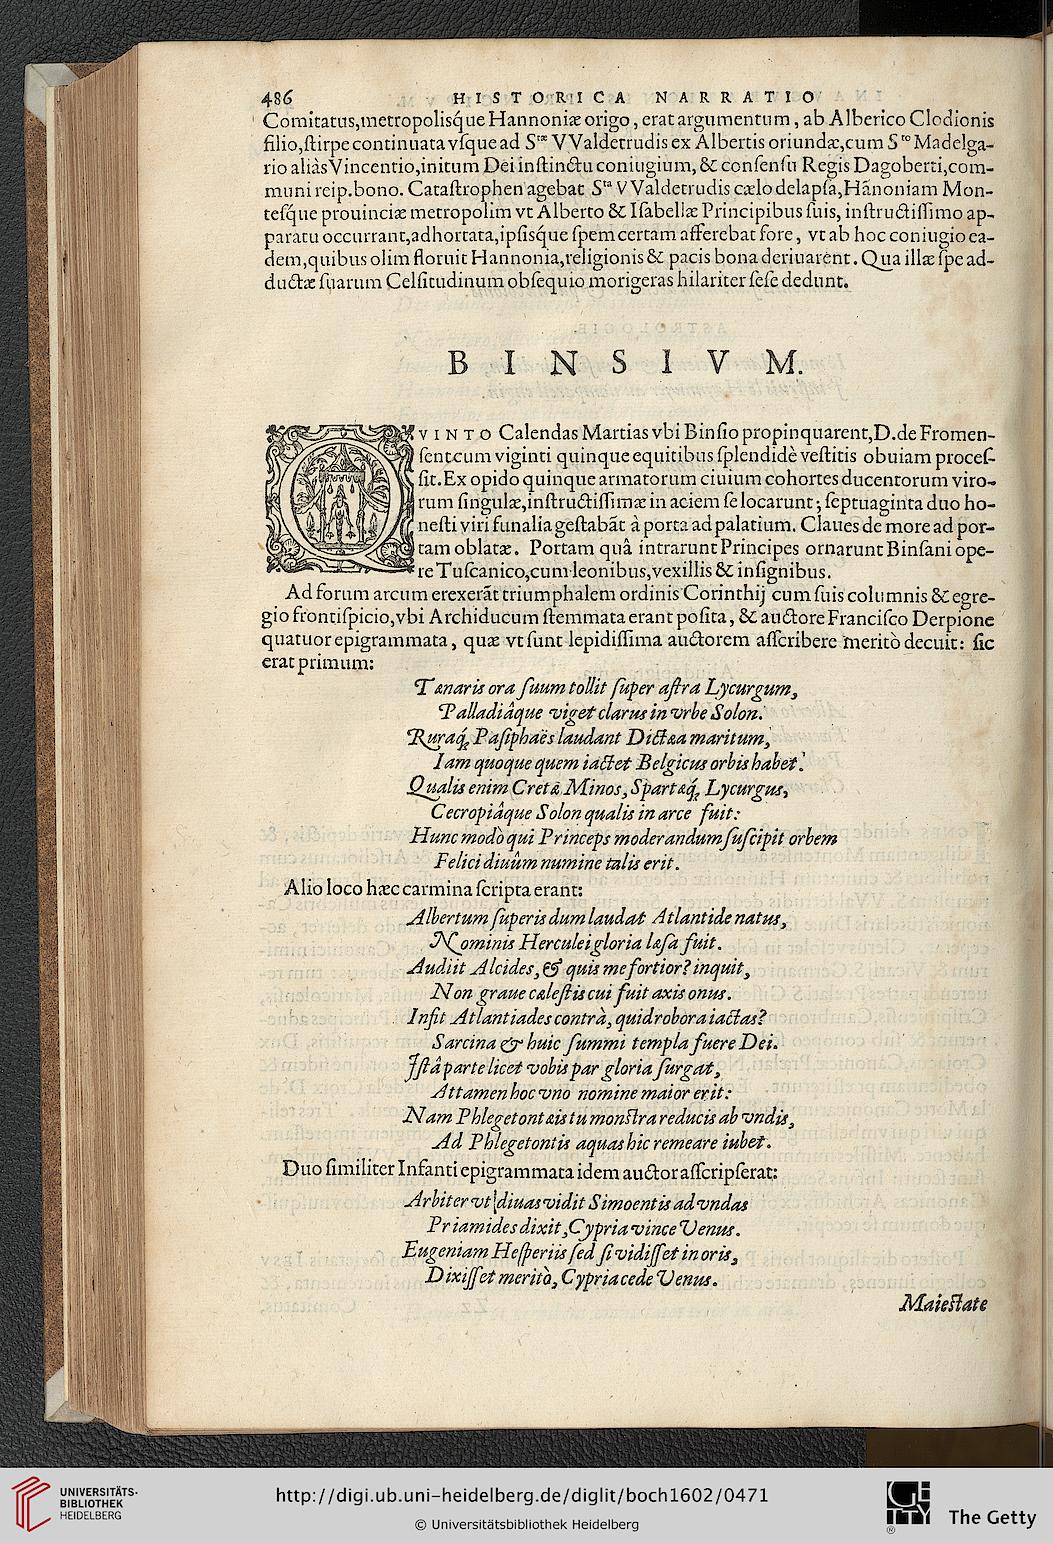 486 HISTORICA NARRATIO
Comitatus,metropolisq́ue Hannoniæ origo, erat argumentum, ab Alberico Clodionis
filio,ſtirpe continuata vſque ad Sᵗæ VValdetrudis ex Albertis oriundæ,cum Sᵗᵒ Madelga-
rio aliàs Vincentio,initum Dei inſtinctu coniugium, & conſenſu Regis Dagoberti,com-
muni reip.bono. Cataſtrophen agebat Sᵗᵃ VValdetrudis cælo delapſa,Hãnoniam Mon-
teſq́ue prouinciæ metropolim vt Alberto & Iſabellæ Principibus ſuis, inſtructiſſimo ap-
paratu occurrant,adhortata,ipſisq́ue ſpem certam afferebat fore, vt ab hoc coniugio ea-
dem,quibus olim floruit Hannonia,religionis & pacis bona deriuarent. Qua illæ ſpe ad-
ductæ ſuarum Celſitudinum obſequio morigeras hilariter ſeſe dedunt.
BINSIVM.
QVINTO Calendas Martias vbi Binſio propinquarent,D.de Fromen-
ſent cum viginti quinque equitibus ſplendidè veſtitis obuiam proceſ-
ſit. Ex opido quinque armatorum ciuium cohortes ducentorum viro-
rum ſingulæ,inſtructiſſimæ in aciem ſe locarunt; ſeptuaginta duo ho-
neſti viri funalia geſtabãt à porta ad palatium. Claues de more ad por-
tam oblatæ. Portam quâ intrarunt Principes ornarunt Binſani ope-
re Tuſcanico,cum leonibus,vexillis & inſignibus.
Ad forum arcum erexerãt triumphalem ordinis Corinthij cum ſuis columnis & egre-
gio frontiſpicio,vbi Archiducum ſtemmata erant poſita, & auctore Franciſco Derpione
quatuor epigrammata, quæ vt ſunt lepidiſſima auctorem aſſcribere meritò decuit: ſic
erat primum:
Tænaris ora ſuum tollit ſuper aſtra Lycurgum,
Palladiâque viget clarus in vrbe Solon.
Ruraq́; Paſiphaës laudant Dictæa maritum,
Iam quoque quem iactet Belgicus orbis habet.
Qualis enim Cretæ Minos, Spartæq́; Lycurgus,
Cecropiâque Solon qualis in arce fuit:
Hunc modò qui Princeps moderandum ſuſcipit orbem
Felici diuûm numine talis erit.
Alio loco hæc carmina ſcripta erant:
Albertum ſuperis dum laudat Atlantide natus,
Nominis Herculei gloria læſa fuit.
Audiit Alcides, & quis me fortior? inquit,
Non graue cæleſtis cui fuit axis onus.
Inſit Atlantiades contrà, quid robora iactas?
Sarcina & huic ſummi templa fuere Dei.
Iſtâ parte licet vobis par gloria ſurgat,
Attamen hoc vno nomine maior erit:
Nam Phlegetontæis tu monſtra reducis ab vndis,
Ad Phlegetontis aquas hic remeare iubet.
Duo ſimiliter Infanti epigrammata idem auctor aſſcripſerat:
Arbiter vt diuas vidit Simoentis ad vndas
Priamides dixit, Cypria vince Venus.
Eugeniam Heſperiis ſed ſi vidiſſet in oris,
Dixiſſet meritò, Cypria cede Venus.
Maieſtate
UNIVERSITÄTS-
BIBLIOTHEK
HEIDELBERG
http://digi.ub.uni-heidelberg.de/diglit/boch1602/0471
© Universitätsbibliothek Heidelberg
GETTY
®
The Getty